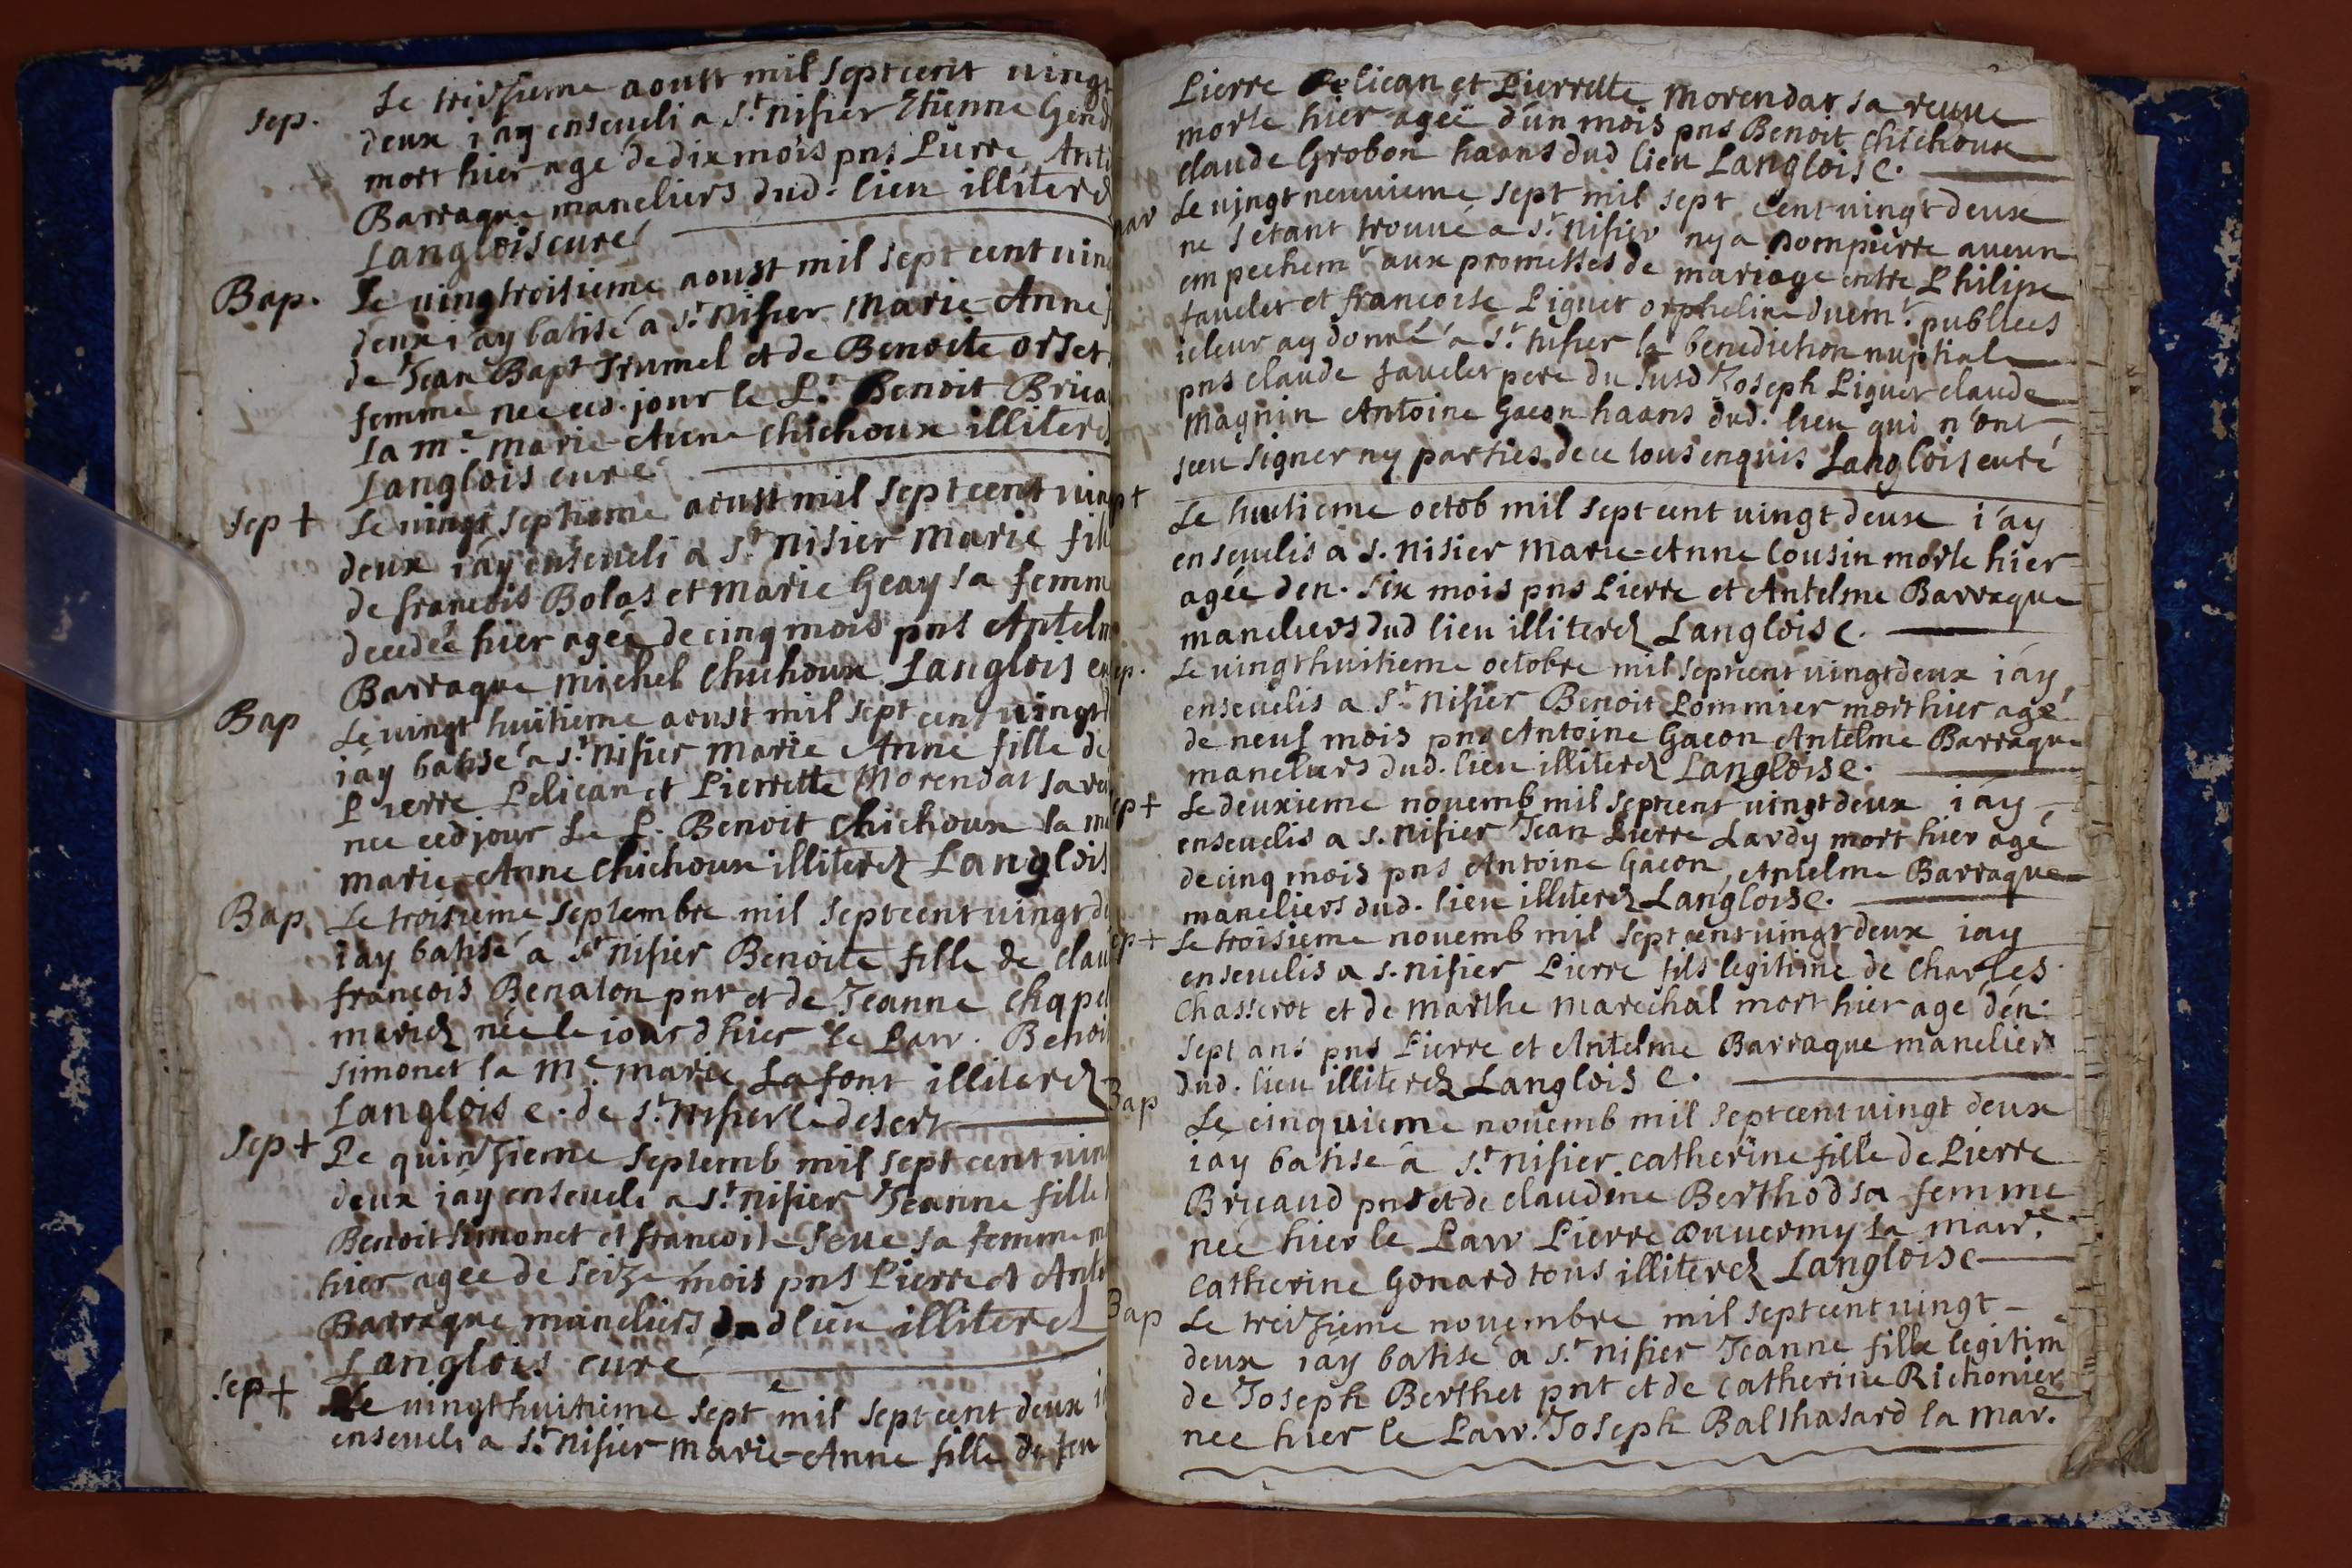 sep. Le treizieme aoust mil sept cent vingt
deux i'ay enseveli a st. nisier Etienne Gend
mort hier agé de dix mois pns Pierre Ant
Barraque maneliers dud. lieu illiterez
Langlois curé
Bap. Le vingtroisieme aoust mil sept cent vin
deux i'ay batisé a st. nisier marie-Anne f
de Jean Bapt Trumel et de Benoite orset
femme nee ced. jour le P. Benoit Brica
la me. marie-Anne chichoux illiterez
Langlois curé
sep + Le vingt septieme aoust mil sept cent vin
deux i'ay enseveli a st nisier marie fill
de francois Bolas et marie Geay sa femm
decedée hier agée de cinq mois pns Antelm
Barraque michel chichoux Langlois cu
Bap Le vingt huitieme aoust mil sept cent vingt
i'ay batisé a st. nisier marie Anne fille de
Pierre Pelican et Pierrette Morendat sa ve
nee ced jour Le P. Benoit chichoux la m
marie-Anne chichoux illiterez Langlois
Bap Le troisieme septembre mil sept cent vingt d
i'ay batisé a st nisier Benoite fille de clau
francois Benaton pnt et de Jeanne chapel
mariez née le iour d'hier le Parr. Benoi
simonet la me. marie Lafont illiterez
Langlois c. de st. nisier le desert
sep + Le quinzieme septemb mil sept cent vin
deux i'ay enseveli a st. nisier Jeanne fille
Benoit simonet et francoise seve sa femme m
hier agee de seize mois pns Pierre et Ante
Barraque maneliers dud lieu illiterez
Langlois curé
sep + Le vingt huitieme septe mil sept cent deux i
enseveli a st. nisier marie-Anne fille de feu
Pierre Pelican et Pierrette morendat sa veuve
morte hier agée d'un mois pns Benoit chichoux
claude Grobon haans dud lieu Langlois c.
mar Le vingt neuvieme sept mil sept cent vingt deux
ne s'etant trouvé a st. nisier ny a Dompierre aucun
empechemt aux promesses de mariage entre Philipe
favelet et francoise Piguet orpheline duemt. publiees
ie leur ay donné a st. nisier la benediction nuptiale
pns claude favelet pere du susd Joseph Piguet claude
magnin Antoine Gacon haans dud. lieu qui n'ont
sceu signer ny parties de ce tous enquis Langlois curé
ept + Le huitieme octob mil sept cent vingt deux i'ay
ensevelis a s. nisier marie-Anne cousin morte hier
agée d'en. six mois pns Pierre et Antelme Barraque
maneliers dud lieu illiterez Langlois c.
ep. Le vingt huitieme octobre mil sept cent vingt deux i'ay
ensevelis a st. nisier Benoit Pommier mort hier agé
de neuf mois pns Antoine Gacon Antelme Barraque
maneliers dud. lieu illiterez Langlois c.
ep + Le deuxieme novemb mil sept cent vingt deux i'ay
ensevelis a s. nisier Jean Pierre Lardy mort hier agé
de cinq mois pns Antoine Gacon, Antelme Barraque
maneliers dud. lieu illiterez Langlois c.
ep + Le troisieme novemb mil sept cent vingt deux i'ay
ensevelis a s. nisier Pierre fils legitime de charles
chasserot et de marthe marechal mort hier agé d'en.
sept ans pns Pierre et Antelme Barraque manelier
dud. lieu illiterez Langlois c.
Bap Le cinquieme novemb mil sept cent vingt deux
i'ay batisé a st. nisier catherine fille de Pierre
Bricaud pnt et de claudine Berthod sa femme
neé hier le Parr Pierre Duvermy la marre.
catherine Gonard tous illiterez Langlois c
Bap Le treizieme novembre mil sept cent vingt-
deux i'ay batisé a st. nisier Jeanne fille legitime
de Joseph Berthet pnt et de catherine Richonier
nee hier le Parr. Joseph Balthasard la mare.